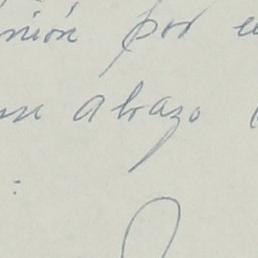 nión por e
un abrazo
: